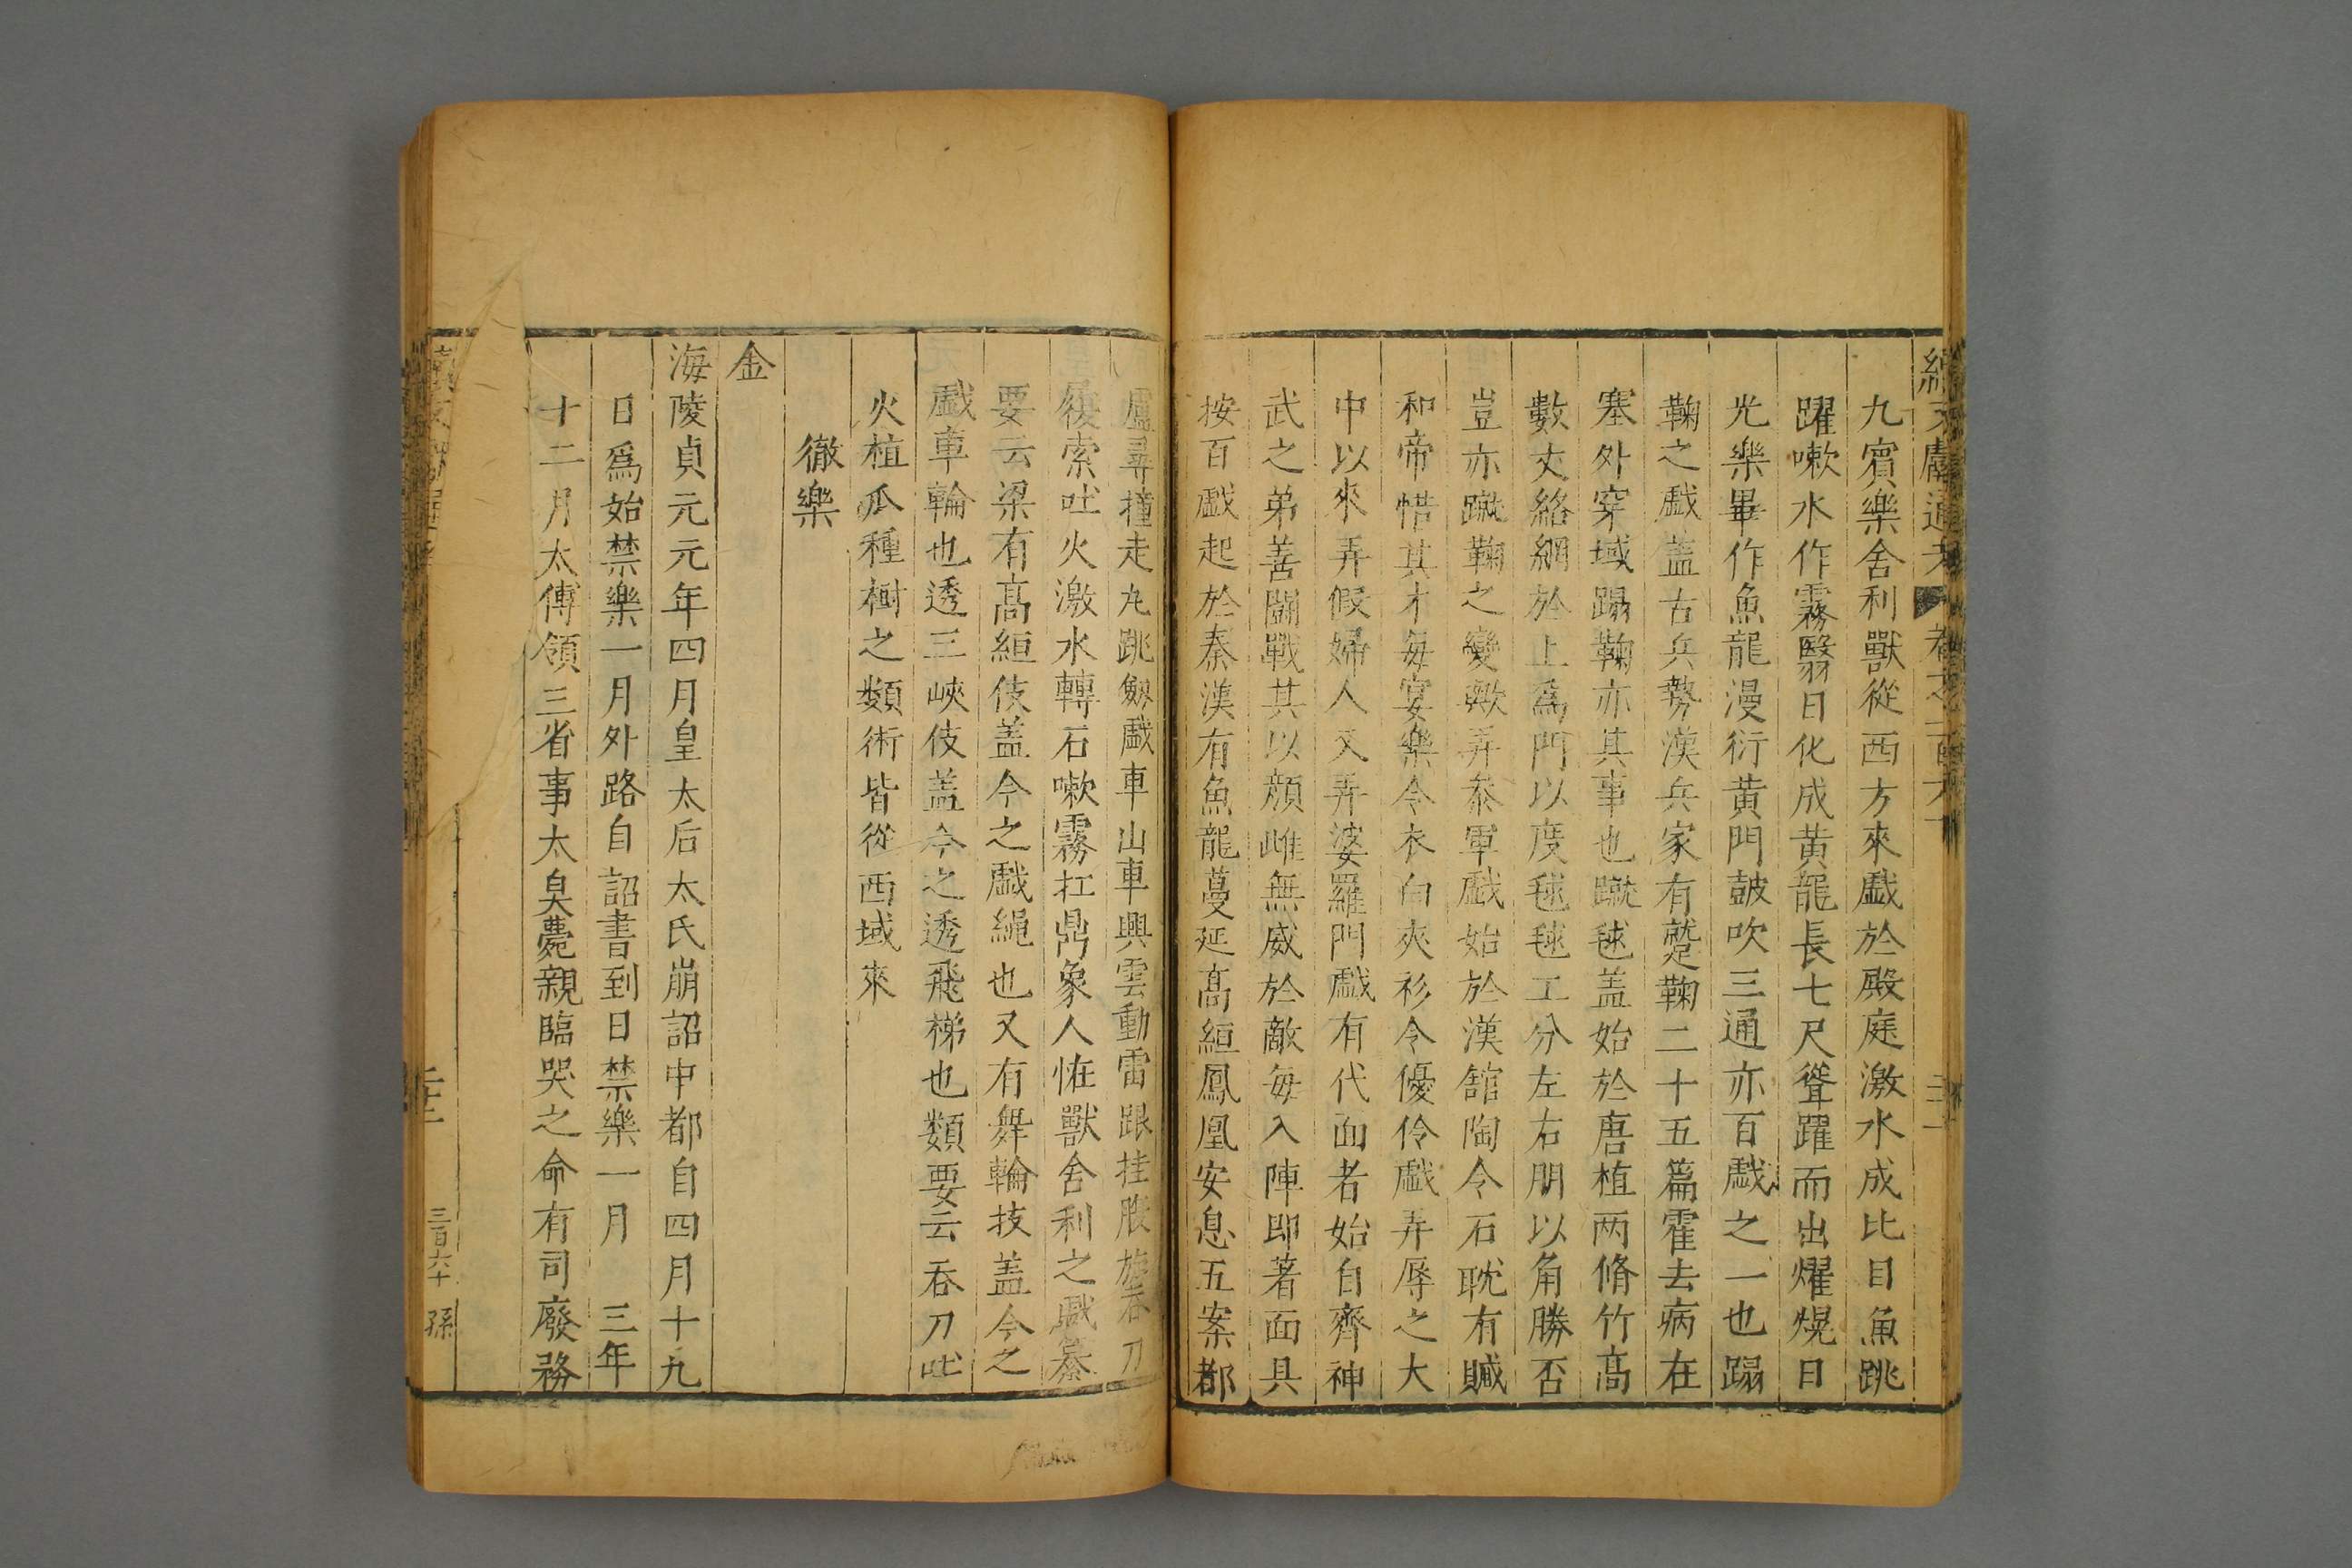 續文獻通考 卷之一百十
九賓樂舍利獸從西方來戲於殿庭激水成比目魚跳
躍嗽水作霧翳日化成黃龍長七尺聳躍而出燿熀日
光樂畢作魚龍漫衍黃門皷吹三通亦百戲之一也蹋
鞠之戲蓋古兵勢漢兵家有蹵鞠二十五篇霍去病在
塞外穿域蹋鞠亦其事也蹴毬盖始於唐植两脩竹高
數丈絡網於上爲門以度毬毬工分左右朋以角勝否
豈亦蹴鞠之變歟弄叅軍戲始於漢舘陶令石耽有贓
和帝惜其才毎宴樂令衣白夾衫令優伶戲弄辱之大
中以來弄假婦人又弄婆羅門戲有代面者始自齊神
武之弟善鬬戰其以顔雌無威於敵毎入陣即著面具
按百戲起於秦漢有魚龍蔓延高絙鳳凰安息五案都
盧尋撞走丸跳劔戲車山車興雲動雷跟挂腹旋吞刀
履索吐火激水轉石嗽霧扛鼎象人恠獸舍利之戲纂
要云梁有高絙伎盖今之戲繩也又有舞輪技盖今之
戲車輪也透三峽伎盖今之透飛梯也類要云吞刀吐
火植瓜種樹之類術皆從西域來
徹樂
金
海陵貞元元年四月皇太后太氏崩詔中都自四月十九
日爲始禁樂一月外路自詔書到日禁樂一月 三年
十二月太傅領三省事太㚖薨親臨哭之命有司廢務
三百六十 孫